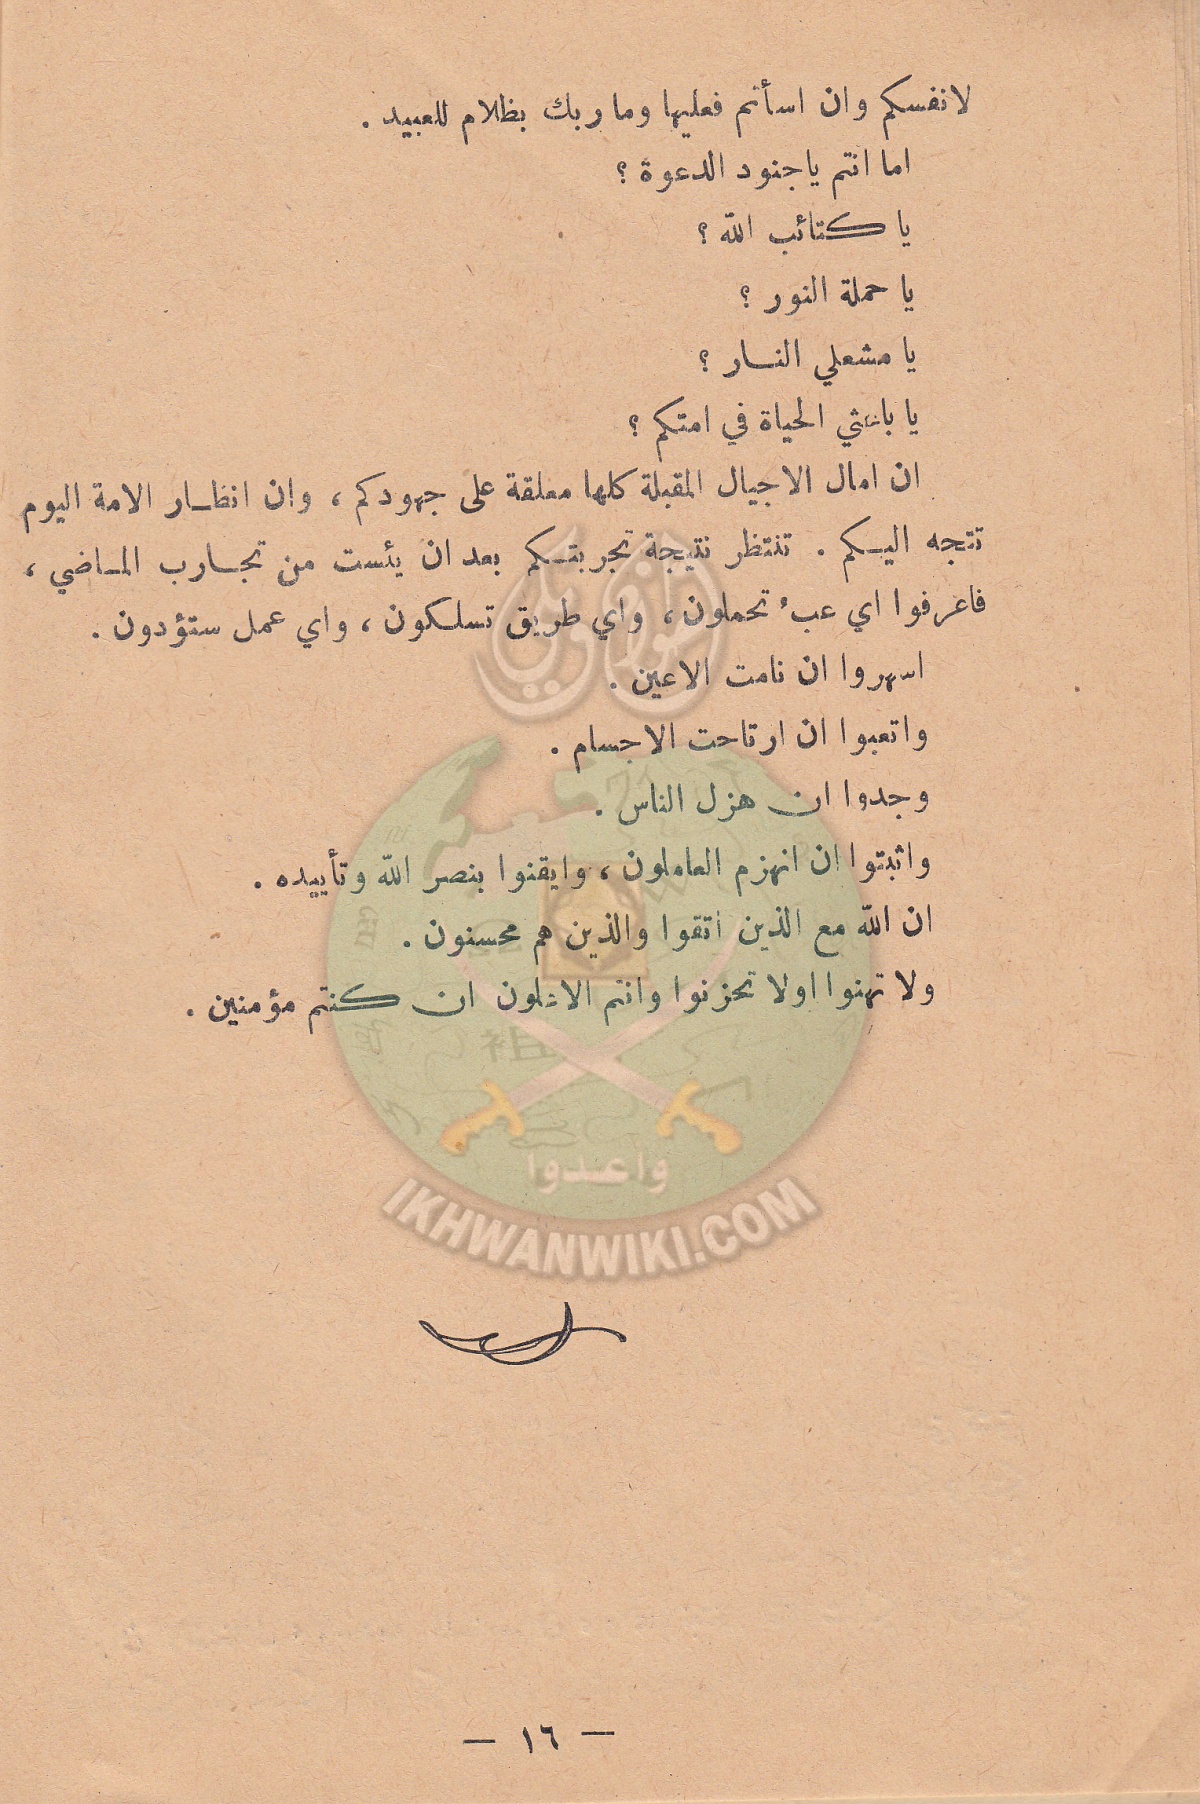 لانفسكم وان اسأتم فعليها وما ربك بظلام للعبيد .
اما انتم ياجنود الدعوة ؟
يا كتائب الله ؟
يا حملة النور ؟
يا مشعلي النـار ؟
يا باعثي الحياة في امتكم ؟
ان امال الاجيال المقبلة كلها معلقة على جهودكم ، وان انظـار الامة اليوم
تتجه اليـكم . تنتظر نتيجة تجربتـكم بعد ان يئست من تجـارب المـاضي ،
فاعرفوا اي عبء تحملون ، واي طريق تسلكون ، واي عمل ستؤدون .
اسهروا ان نامت الاعين .
واتعبوا ان ارتاحت الاجسام .
وجدوا ان هزل الناس .
واثبتوا ان انهزم العاملون ، وايقنوا بنصر الله وتأييده .
ان الله مع الذين اتقوا والذين هم محسنون .
ولا تهنوا اولا تحزنوا وانتم الاعلون ان كنتم مؤمنين .
إخوان ويكي
واعـدوا
IKHWANWIKI.COM
— ١٦ —